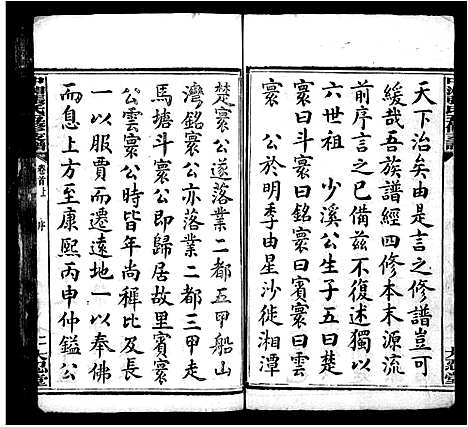 天下治矣由是言之修譜豈可
緩哉吾族譜經四修本末源流
前序言之已備茲不復述獨以
六世祖 少溪公生子五曰楚
寰曰斗寰曰銘寰曰賓寰曰雲
寰公於明季由星沙徙湘潭
楚寰公遂落業二都五甲船山
灣銘寰公亦落業二都三甲走
馬塘斗寰公即歸居故里賓寰
公雲寰公時皆年尚穉比及長
一以服賈而遷遠地一以奉佛
而息上方至康熙丙申仲鎰公
卷首上
序
二